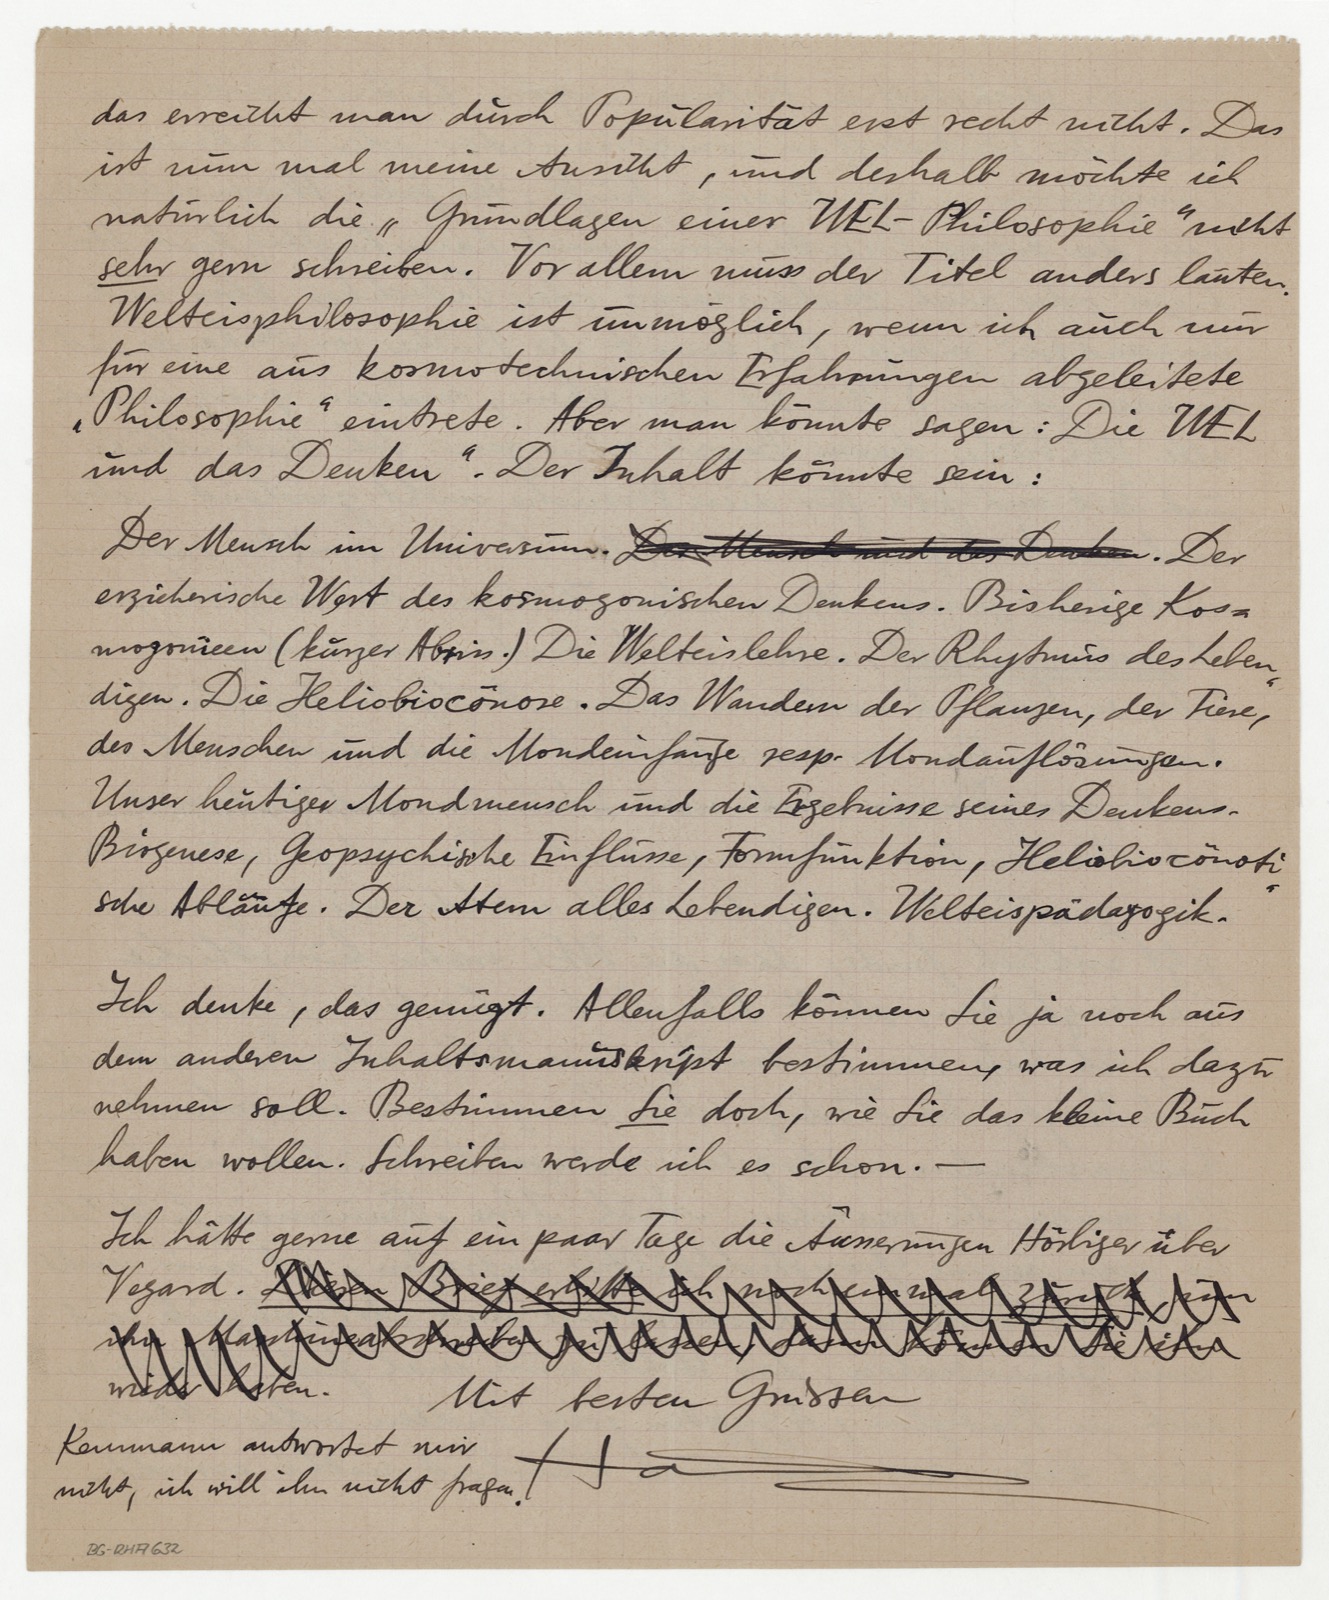 das erreicht man durch Popularität erst recht nicht. Das
ist nun mal meine Ansicht, und deshalb möchte ich
natürlich die „Grundlagen einer WEL-Philosophie“ nicht
sehr gern schreiben. Vor allem muss der Titel anders lauten.
Welteisphilosophie ist unmöglich, wenn ich auch nur
für eine aus kosmotechnischen Erfahrungen abgeleitete
„Philosophie“ eintrete. Aber man könnte sagen: Die WEL
und das Denken“. Der Inhalt könnte sein:
Der Mensch im Universum. Der Mensch und das Denken. Der
erzieherische Wert des kosmogonischen Denkens. Bisherige Kos=
mogonieen (kurzer Abriss.) Die Welteislehre. Der Rhytmus des Leben-
digen. Die Heliobiocönose. Das Wandern der Pflanzen, der Tiere,
des Menschen und die Mondeinfänge resp. Mondauflösungen.
Unser heutiger Mondmensch und die Ergebnisse seines Denkens.
Biogenese, Geopsychische Einflüsse, Formfunktion, Heliobiocönoti-
sche Abläufe. Der Atem alles Lebendigen. Welteispädagogik.
Ich denke, das genügt. Allenfalls können Sie ja noch aus
dem anderen Inhaltsmanuskript bestimmen, was ich dazu
nehmen soll. Bestimmen Sie doch, wie Sie das kleine Buch
haben wollen. Schreiben werde ich es schon. —
Ich hätte gerne auf ein paar Tage die Äusserungen Hörbiger über
Vegard. Diesen Brief erbitte ich noch einmal zurück, um
ihn Maschineabschreiben zu lassen, dann können Sie ihn
wieder haben.
Mit besten Grüssen
Kennmann antwortet mir
nicht, ich will ihn nicht fragen!
BG-RHA 632